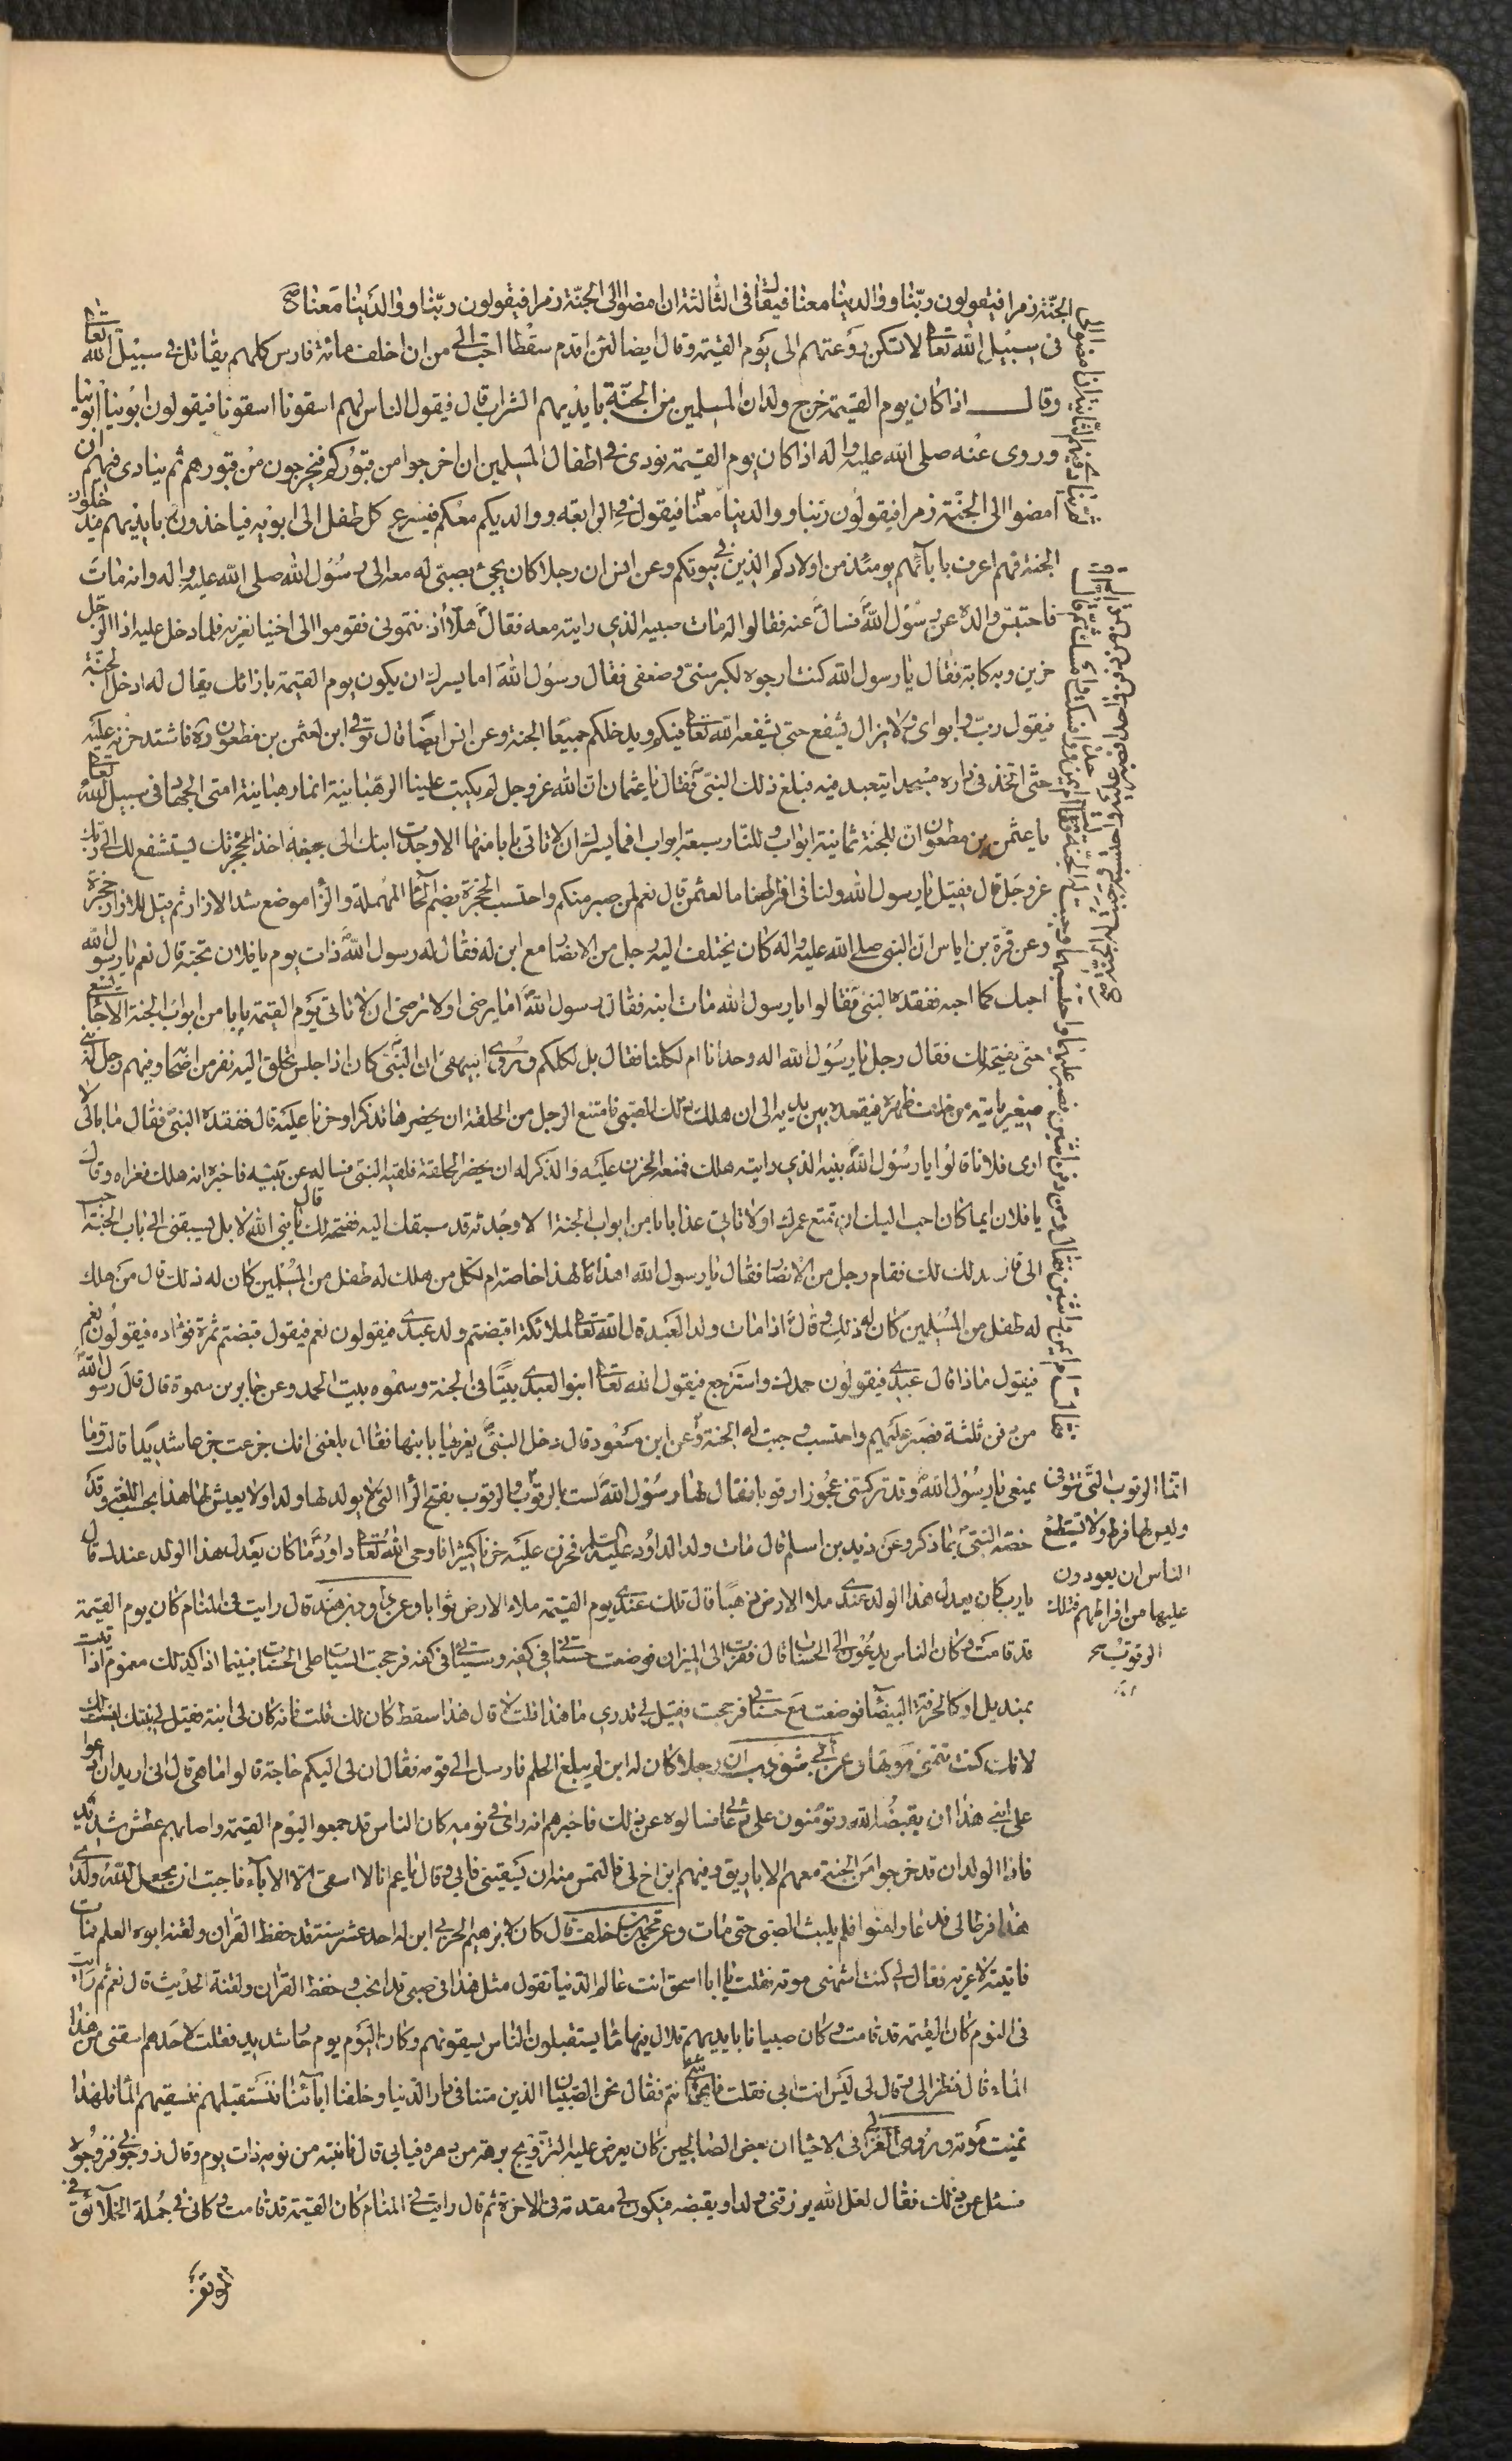 الجنّة زمرا فيقولون ربّنا ووالدينا معنا فيقال فى الثّالثة ان امضوا الى الجنّة زمرا فيقولون ربّنا ووالدينا معنا صح
فى سبيل الله تعالى لا تسكن روعتهم الى يوم القيمة وقال ايضا لئن اقدم سقطا احبّ الىّ من ان اخلف مائة فارس كلهم يقاتل فى سبيل الله تعالى
وقال اذا كان يوم القيمة خرج ولدان المسلمين من الجنّة بايديهم الشراب قال فيقول الناس لهم اسقونا اسقونا فيقولون ابوينا ابوينا
وروى عنه صلى الله عليه واله اذا كان يوم القيمة نودى فى اطفال المسلمين ان اخرجوا من قبوركم فيخرجون من قبورهم ثم ينادى فيهم ان
امضوا الى الجنّة زمرا فيقولون ربّنا ووالدينا معنا فيقول فى الرابعه ووالديكم معكم فيسرع كل طفل الى ابويه فياخذون بايديهم فيدخلون
الجنة فهم اعرف بابآئهم يومئذ من اولادكم الذين فى بيوتكم وعن انس ان رجلا كان يجئ بصبىّ له معه الى رسول الله صلى الله عليه واله وانه مات
فاحتبس والده عن رسول الله فسال عنه فقالوا له مات صبيه الذي رايته معه فقال هلّا اذنتمونى فقوموا الى اخينا نعزيه فلما دخل عليه اذا الرجل
حزين وبه كابة فقال يا رسول الله كنت ارجوه لكبر سنى وضعفى فقال رسول الله اما يسرك ان يكون يوم القيمة بازائك يقال له ادخل الجنّة
فيقول ربّ وابواى ولا يزال يشفع حتى يشفعه الله تعالى فيكم ويدخلكم جميعا الجنة وعن انس ايضا قال توفى ابن لعثمن بن مظعون ره فاشتد حزنه عليه
حتّى اتخذ فى داره مسجدا يتعبد فيه فبلغ ذلك النبىّ فقال يا عثمان انّ الله عز وجل لم يكتب علينا الرهبانية انما رهبانية امتى الجهاد فى سبيل الله تعالى
يا عثمن بن مظعون انّ للجنة ثمانية ابواب وللنّار سبعة ابواب افما يسرك ان لا تاتى بابا منها الا وجدت ابنك الى جنبه اخذا بحجزتك ليستشفع لك الى ربك
عز وجل قال فقيل يا رسول الله ولنا فى افراطنا ما لعثمن قال نعم لمن صبر منكم واحتسب الحجزة بضم الحا المهملة والزّا موضع شد الازار ثم قيل للازار حجزة
وعن قرة بن اياس انّ النبى صلى الله عليه واله كان يختلف اليه رجل من الانصار مع ابن له فقال له رسول الله ذات يوم يا فلان تحبّه قال نعم يا رسول الله
احبك كما احبه ففقده النبى فقالوا يا رسول الله مات ابنه فقال رسول الله اما يرضى او لا ترضى ان لا تاتى يوم القيمة بابا من ابواب الجنة الا جا يسعى
حتى يفتحه لك فقال رجل يا رسول الله اله وحده ام لكلنا فقال بل لكلكم وروى البيهقى ان النبىّ كان اذا جلس تحلق اليه نفر من اصحابه وفيهم رجل له بنى
صغير ياتيه من خلف ظهره فيقعده بين يديه الى ان هلك ذلك الصبى فامتنع الرجل من الحلقة ان يحضرها تذكرا وحزنا عليه قال ففقده النبىّ فقال ما بالى لا
ارى فلانا قالوا يا رسول الله بنيه الذي رايته هلك فمنعه الحزن عليه والذكر له ان يحضر الحلقة فلقيه النبى فساله عن بنيه فاخبره انه هلك فعزاه وقال
يا فلان ايما كان احب اليك ان تمتع به عمرك او لا تاتى غدا بابا من ابواب الجنة الا وجدته قد سبقك اليه ففتحه لك قال يا نبى الله لا بل يسبقنى الى باب الجنة احب
الى قال ذلك لك فقام رجل من الانصار فقال يا رسول الله اهذا لهذا خاصة ام لكل من هلك له طفل من المسلمين كان له ذلك قال من هلك
له طفل من المسلمين كان له ذلك وقال اذا مات ولد العبد قال الله تعالى لملائكته اقبضتم ولد عبدى فيقولون نعم فيقول قبضتم ثمرة فؤاده فيقولون نعم
فيقول ماذا قال عبدى فيقولون حمدك واسترجع فيقول الله تعالى ابنوا لعبدى بيتًا فى الجنة وسموه بيت الحمد وعن جابر بن سمرة قال قال رسول الله
من دفن ثلثة فصبر عليهم واحتسب وجبت له الجنة وعن ابن مسعود قال دخل النبىّ يعزيها بابنها فقال بلغنى انك جزعت جزعا شديدا قالت وما
يمنعنى يا رسول الله وقد تركنى عجوزا رقوبا فقال لها رسول الله لست بالرقوب والرقوب بفتح الرا التى لا يولد لها ولد او لا يعيش لها هذا بحسب اللغة وقد
خصّه النبىّ بما ذكر وعن زيد بن اسلم قال مات ولد لداود عليه السلم فحزن عليه حزنا كثيرا فاوحى الله تعالى يا داود ما كان يعدل هذا الولد عندك قال
يا رب كان يعدل هذا الولد عندى ملا الارض ذهبًا قال فلك عندى يوم القيمة ملاء الارض ثوابا وعن داود بن هند قال رايت فى المنام كان يوم القيمة
قد قامت وكان الناس يدعون الى الحساب قال فقربت الى الميزان فوضعت حسناتى فى كفه وسيئاتى فى كفه فرجحت السيات على الحسنات فبينما انا كذلك مغموم اذا اتيت
بمنديل او كالخرقة البيضا فوضعت مع حسناتى فرجحت فقيل لى تدري ما هذا قلت لا قال هذا سقط كان لك قلت فانه كان لى ابنة فقيل لى بنتك ليست لك
لانك كنت تتمنى موتها وعن ابى شوذب ان رجلا كان له ابن لم يبلغ الحلم فارسل الى قومه فقال ان لى اليكم حاجة قالوا ما هى قال انى اريد ان ادعوا
على ابنى هذا ان يقبضه الله وتؤمنون على دعائى فسالوه عن ذلك فاخبرهم انه راى فى نومه كان الناس قد جمعوا ليوم القيمة واصابهم عطش شديد
فاذا الولدان قد خرجوا من الجنة معهم الاباريق وفيهم ابن اخ لى فالتمست منه ان يسقينى فابى وقال يا عم انا لا اسقى الّا الابآء فاحببت ان يجعل الله ولدى
هذا فرطا لى فدعا وامنوا فلم يلبث الصبى حتى مات وعن محمد بن خلف قال كان لابرهيم الحربى ابن له احد عشر سنة قد حفظ القرآن ولقنه ابوه العلم فمات
فاتيته لاعزيه فقال لى كنت اشتهى موته فقلت يا ابا اسحق انت عالم الدنيا تقول مثل هذا فى صبى قد انجب وحفظ القرآن ولقنته الحديث قال نعم رايت
فى النوم كان القيمة قد قامت وكان صبيانا بايديهم قلال فيها ما يستقبلون الناس يسقونهم وكان اليوم يوم حار شديد فقلت لاحدهم اسقنى من هذا
الماء قال فنظر الى وقال لى ليس انت ابى فقلت فاى شى انتم فقال نحن الصبيان الذين متنا فى دار الدنيا وخلفنا ابآئنا نستقبلهم نسقيهم الما فلهذا
تمنيت موته وروى الغزالى فى الاحيا ان بعض الصالحين كان يعرض عليه التزويج برهة من دهره فيابى قال فانتبه من نومه ذات يوم وقال زوجونى فزوجوه
فسئل عن ذلك فقال لعل الله يرزقنى ولدا ويقبضه فيكون لى مقدمة فى الاخرة ثم قال رايت فى المنام كان القيمة قد قامت وكانى فى جملة الخلائق فى
انّما الرقوب الّتى تتوفى
وليس لها فرط ولا تستطيع
الناس ان يعودون
عليها من افراطهم فتلك
الرقوب صح
الموقف